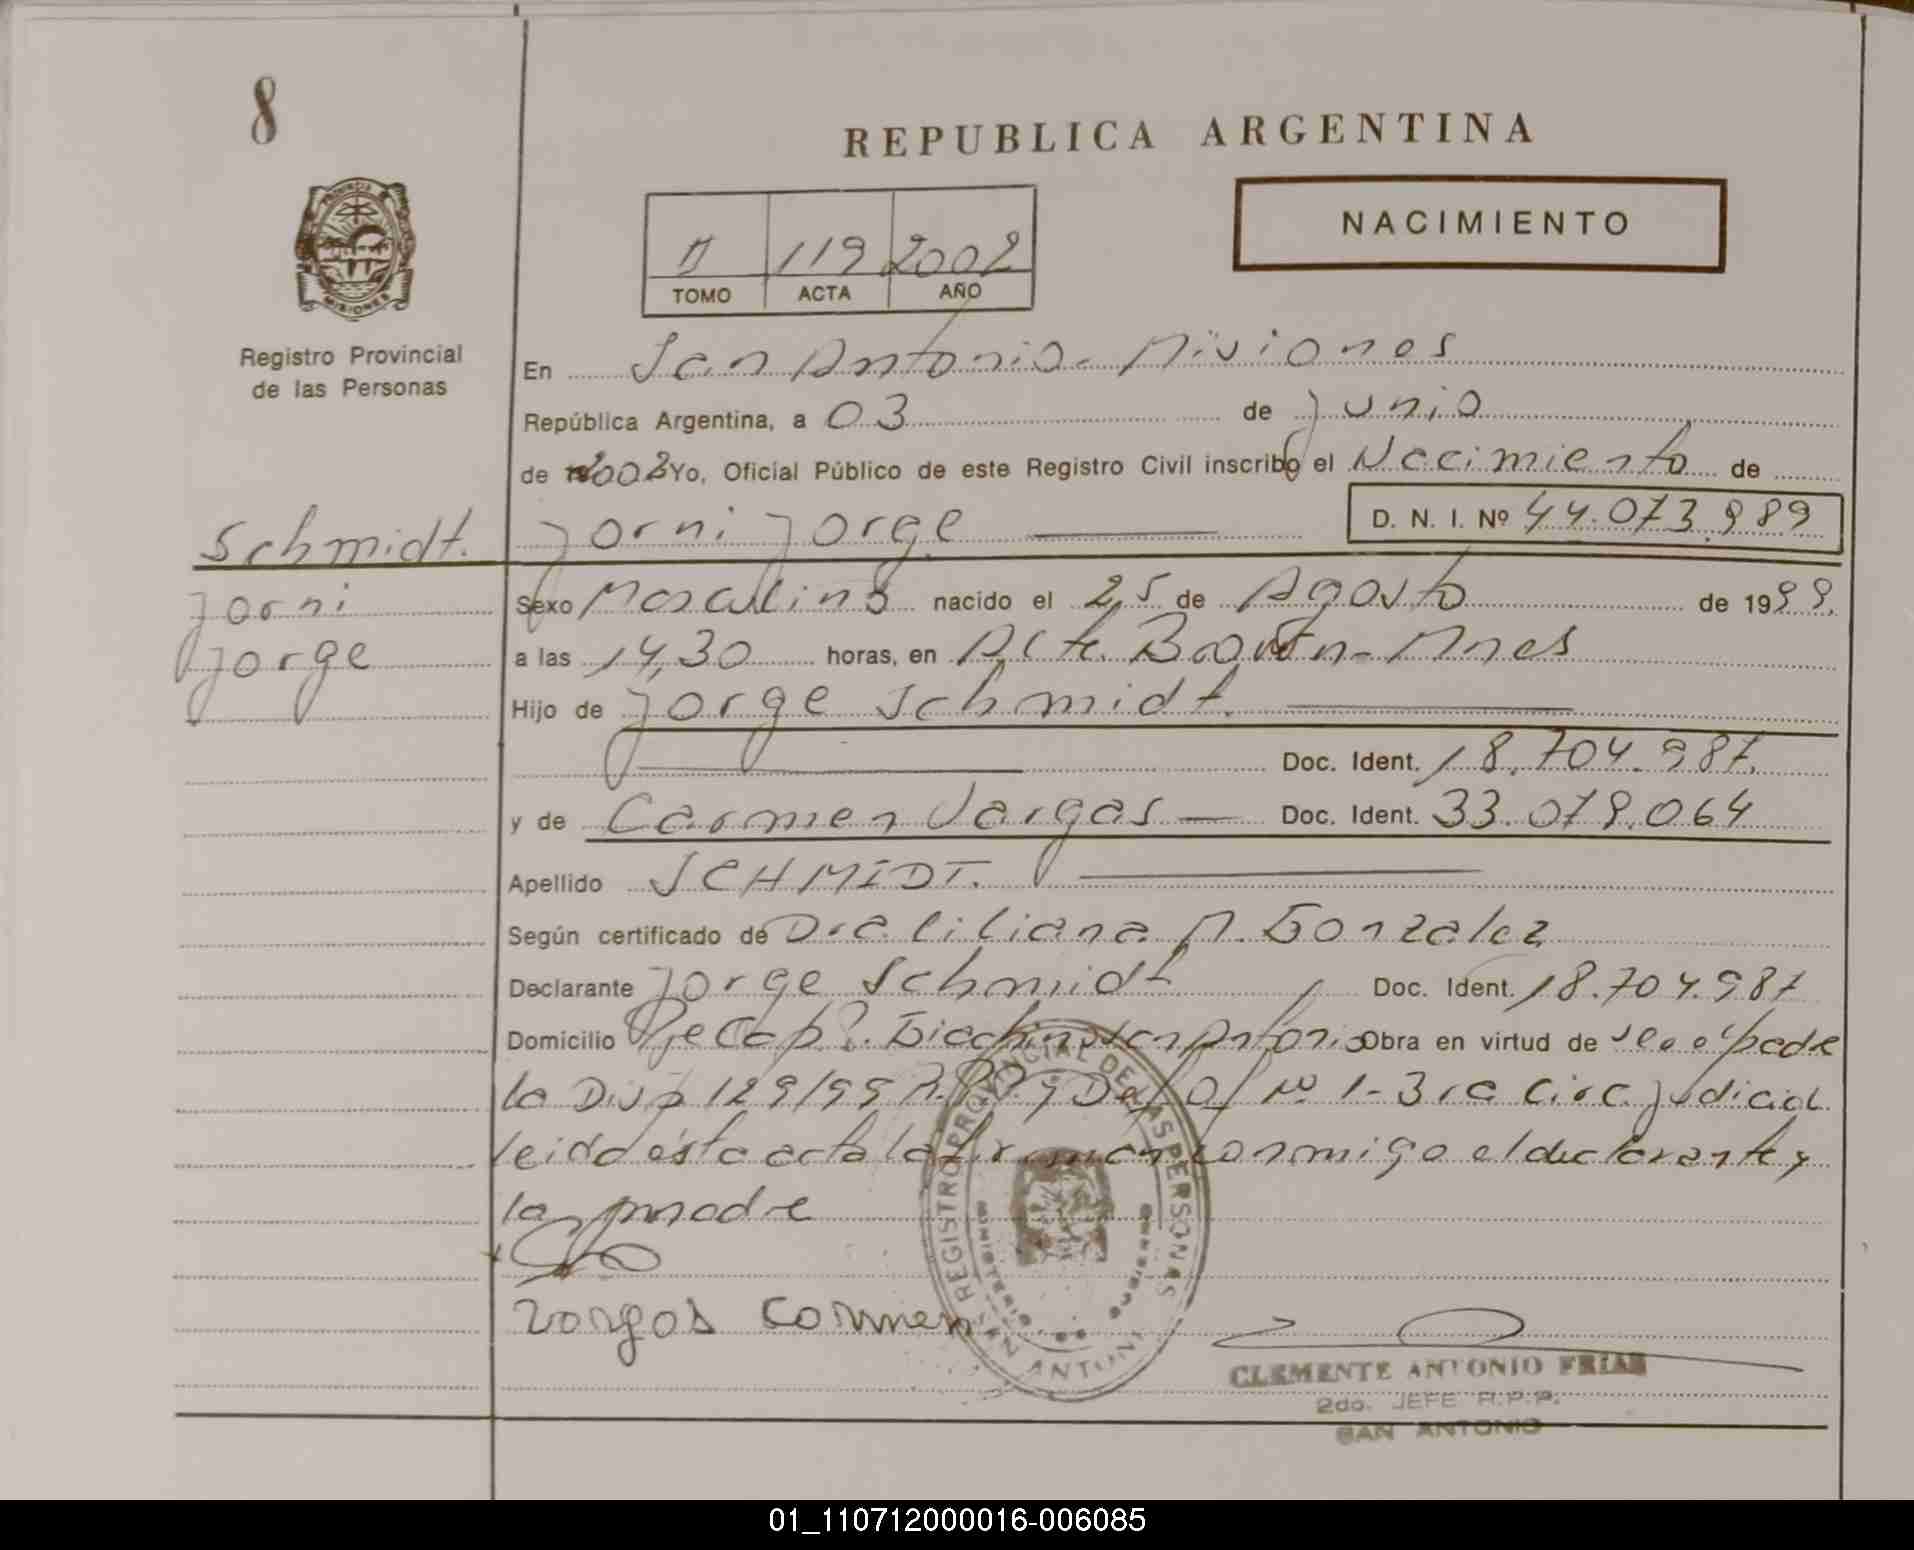 8
REPUBLICA ARGENTINA
NACIMIENTO
PROVINCIA
MISIONES
II 119 2002
TOMO ACTA AÑO
Registro Provincial
de las Personas
En San Antonio - Misiones
República Argentina, a 03 de Junio
de 2002 Yo, Oficial Público de este Registro Civil inscribo el Nacimiento de
Jorni Jorge D. N. I. Nº 44.073.989
Schmidt.
Jorni
Jorge
Sexo Masculino nacido el 25 de Agosto de 1999.
a las 14,30 horas, en Alte. Brown - Mnes
Hijo de Jorge Schmidt.
Doc. Ident. 18.704.987.
y de Carmen Vargas Doc. Ident. 33.079.064
Apellido SCHMIDT.
Según certificado de Dra liliana M. Gonzalez
Declarante Jorge Schmidt Doc. Ident. 18.704.987
Domicilio San Antonio Obra en virtud de
la Disp 129/99 R.P.P. y Def. Of Nº 1 - 3ra Circ. Judicial.
leida ésta acta la firman conmigo el declarante y
la madre
Vargas Carmen
REGISTRO PROVINCIAL DE LAS PERSONAS
SAN ANTONIO
CLEMENTE ANTONIO FRIAS
2do. JEFE R.P.P.
SAN ANTONIO
01_110712000016-006085